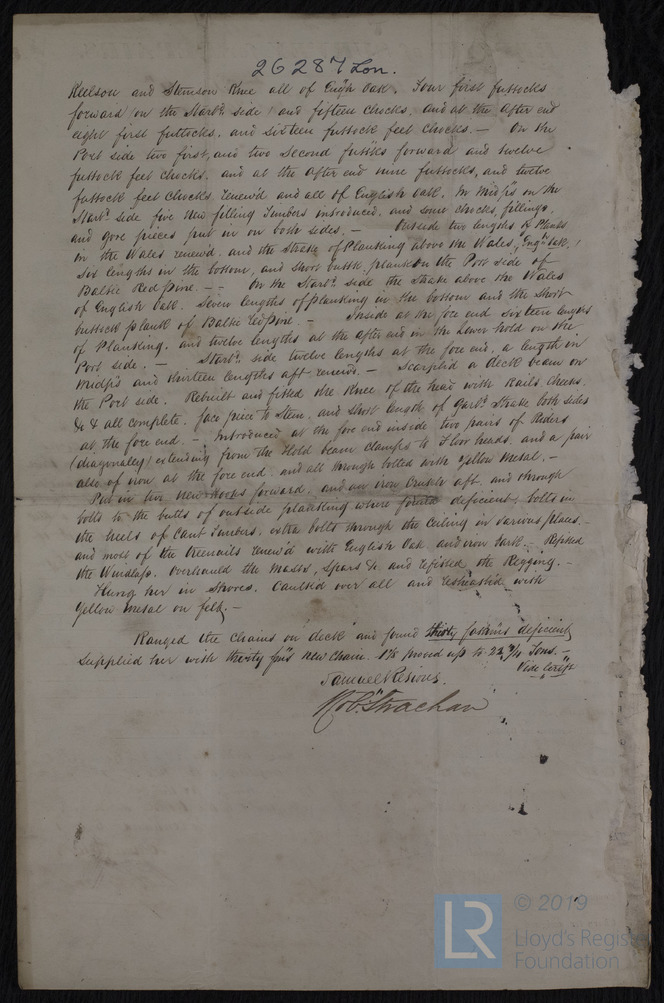 26287 Lon.
Keelson and Stemson Knee all of Engh Oak. Four first futtocks
forward on the Starbd side and fifteen Chocks, and at the after end
eight first futtocks, and sixteen futtock feet Chocks. — On the
Port side two first, and two Second futtks forward and twelve
futtock feet chocks, and at the after end nine futtocks, and twelve
futtock feet Chocks, renew'd and all of English Oak. In Midsps on the
Starbd side five New filling Timbers introduced, and some chocks, fillings,
and gore pieces put in on both sides. — Outside two lengths of Planks
in the Wales renew'd, and the Strake of Planking above the Wales, Engh Oak,
Six lengths in the bottom, and Short buttk plank on the Port side of
Baltic Red Pine. — — On the Starbd side the Strake above the Wales
of English Oak. Seven lengths of planking in the bottom and the Short
buttock plank of Baltic Red Pine. — Inside at the fore end Sixteen lengths
of Planking, and twelve lengths at the after end in the Lower hold on the
Port side. — Starbd side twelve lengths at the fore end, a length in
Midsps and thirteen lengths aft renew'd. — Scarph'd a deck beam on
the Port side. Rebuilt and fitted the Knee of the head with Rails, Cheeks,
&c & all complete. face piece to Stem, and Short length of Garbd Strake both sides
at the fore end. — Introduced at the fore end inside two pairs of Riders
(diagonally) extending from the Hold beam Clamps to Floor heads, and a pair
also of iron at the fore end, and all through bolted with yellow Metal. —
Put in five new Hooks forward, and an iron Crutch aft, and through
bolts to the butts of outside planking where found deficient; bolts in
the heels of Cant Timbers, extra bolts through the Ceiling in various places. —
and most of the treenails renew'd with English Oak and iron bark. — Refitted
the Windlass. Overhauld the Masts, Spars &c and refitted the Rigging. —
Hung her in Shores. Caulk'd over all and resheath'd with
Yellow metal on felt. —
Ranged the chains on deck and found thirty fathms deficient
Supplied her with thirty fms new chain. 1⅜ proved up to 22 Tons. —
Vide Certife
Samuel
Robt Strachan
LR
© 2019
Lloyd's Register
Foundation